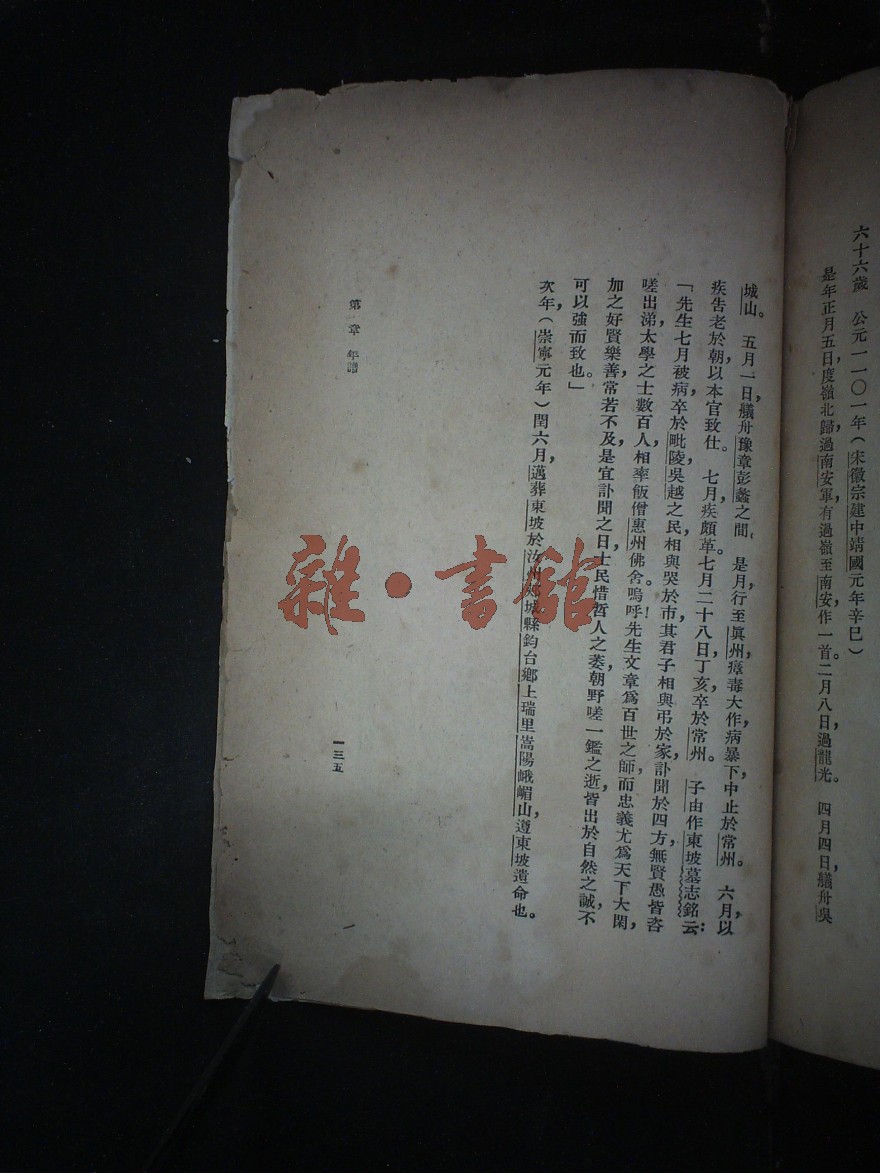 六十六歲　公元一一〇一年（宋徽宗建中靖國元年辛巳）
是年正月五日度嶺北歸，過南安軍，有過嶺至南安作一首。二月八日過龍光。　四月四日，艤舟吳
城山。　五月一日，艤舟豫章彭蠡之間。　是月，行至眞州，瘴毒大作，病暴下，中止於常州。　六月，以
疾告老於朝，以本官致仕。　七月，疾頗革。七月二十八日丁亥，卒於常州。　子由作東坡墓志銘云：
「先生七月被病，卒於毗陵，吳越之民，相與哭於市，其君子相與弔於家，訃聞於四方，無賢愚皆咨
嗟出涕，太學之士數百人，相率飯僧惠州佛舍。嗚呼！先生文章爲百世之師，而忠義尤爲天下大閑，
加之好賢樂善，常若不及，是宜訃聞之日，士民惜哲人之萎，朝野嗟一鑑之逝，皆出於自然之誠，不
可以強而致也。」
次年，（崇寧元年）閏六月，邁葬東坡於汝州郟城縣鈞台鄉上瑞里嵩陽峨嵋山，遵東坡遺命也。
第一章　年譜
一三五
雜·書館